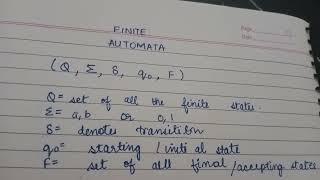 FINITE
AUTOMATA
(Q, Σ, δ, q₀, F)
Q = set of all the finite states.
Σ = a,b or 0,1
δ = denotes transition
q₀ = starting / initial state
F = set of all final/accepting states